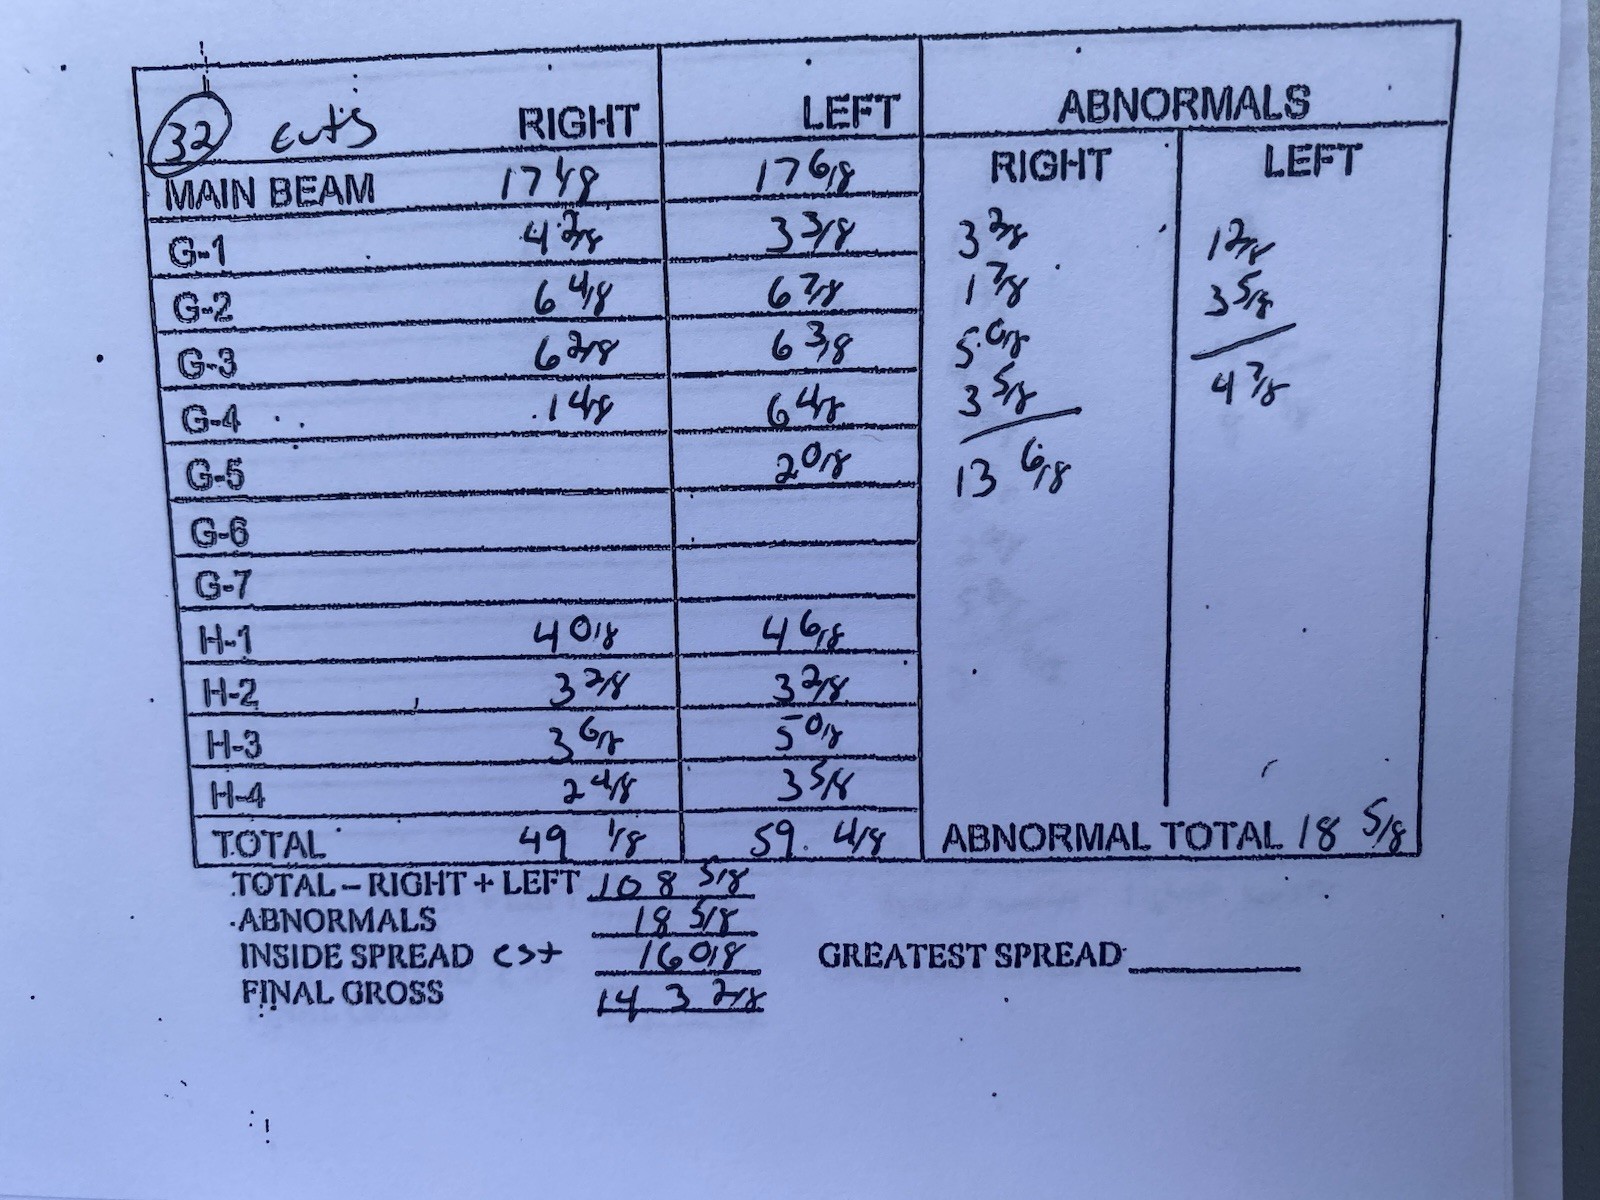 32 cuts RIGHT LEFT ABNORMALS
RIGHT LEFT
MAIN BEAM 17 1/8 17 6/8
G-1 4 2/8 3 3/8 3 2/8 1 2/8
G-2 6 4/8 6 7/8 1 7/8 3 5/8
G-3 6 2/8 6 3/8 5 0/8
G-4 1 4/8 6 4/8 3 5/8 4 7/8
G-5 2 0/8 13 6/8
G-6
G-7
H-1 4 0/8 4 6/8
H-2 3 2/8 3 2/8
H-3 3 6/8 5 0/8
H-4 2 4/8 3 5/8
TOTAL 49 1/8 59 4/8 ABNORMAL TOTAL 18 5/8
TOTAL – RIGHT + LEFT 108 5/8
ABNORMALS 18 5/8
INSIDE SPREAD est 16 0/8 GREATEST SPREAD
FINAL GROSS 143 2/8